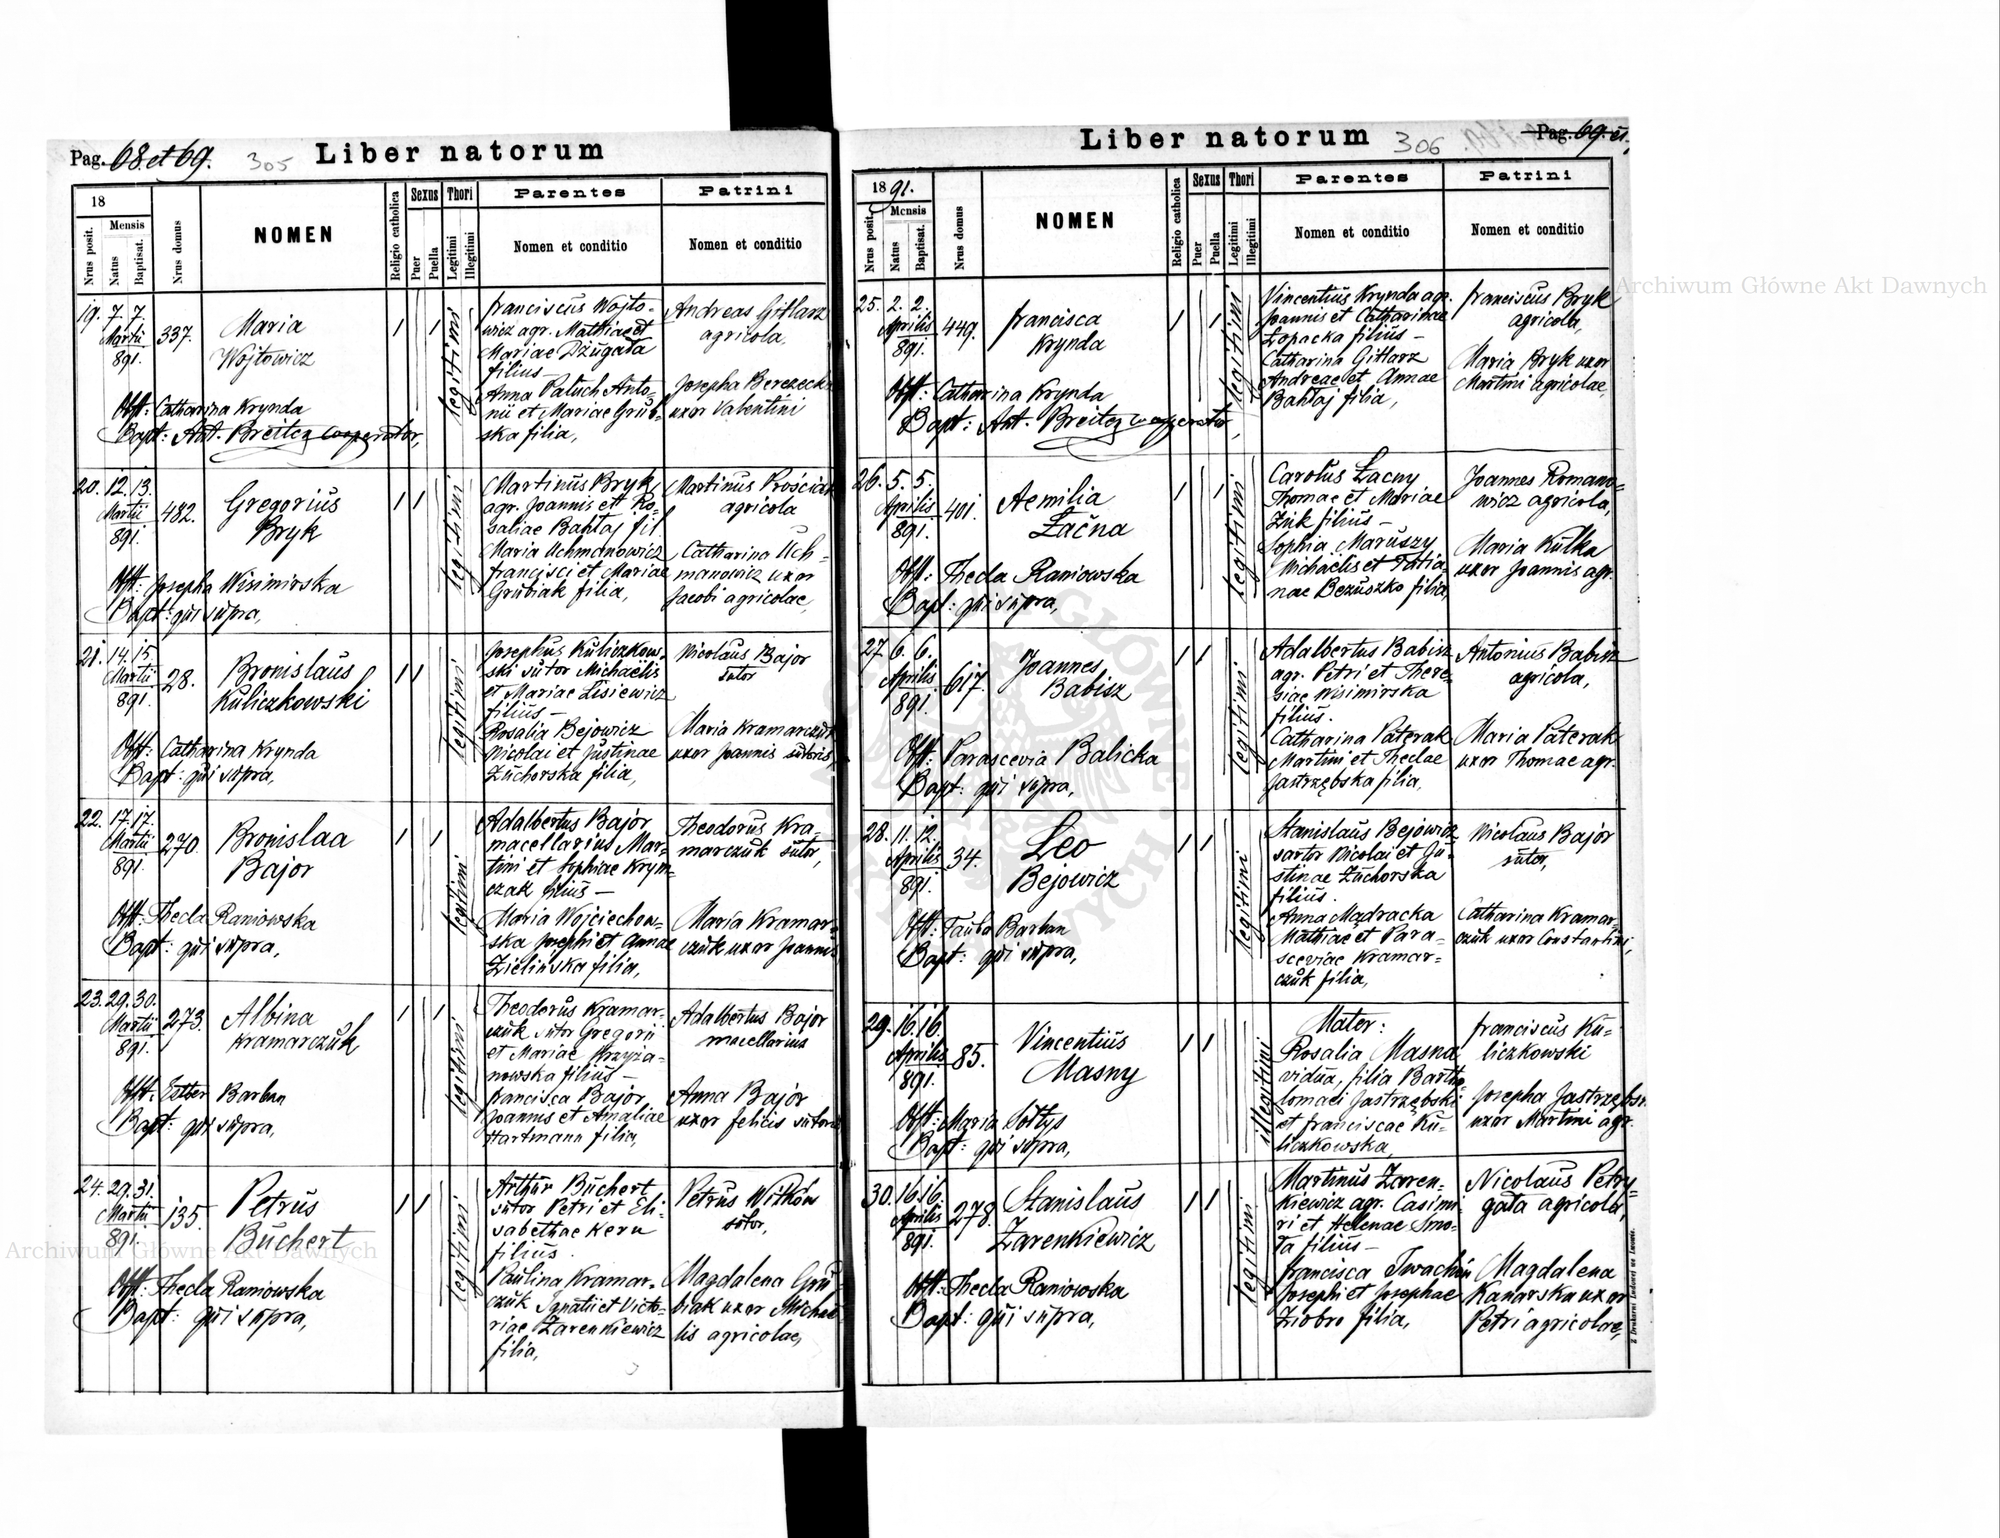 Pag. 68 et 69.
305
Liber natorum
18
Nrus posit.
Mensis
Natus
Baptisat.
Nrus domus
NOMEN
Religio catholica
Sexus
Puer
Puella
Thori
Legitimi
Illegitimi
Parentes
Nomen et conditio
Patrini
Nomen et conditio
19. 7. 7.
Martii
891.
337.
Maria
Wojtowicz
legitimi
franciscus Wojto-
wicz agr. Mathiae et
Mariae Dżugała
filius –
Anna Paluch Anto-
nii et Mariae Grub-
ska filia,
Andreas Gitlarz
agricola,
Josepha Berezecka
uxor Valentini
Obst: Catharina Krynda
Bapt: Ant. Breiter cooperator,
20. 12. 13.
Martii
891.
482.
Gregorius
Bryk
legitimi
Martinus Bryk
agr. Joannis et Ro-
saliae Bahtaj fil.
Maria Uchmanowicz
francisci et Mariae
Grubiak filia,
Martinus Prościak
agricola
Catharina Uch-
manowicz uxor
Jacobi agricolae,
Obst: Josepha Wisimirska
Bapt: qui supra,
21. 14. 15.
Martii
891.
28.
Bronislaus
Kuliczkowski
legitimi
Josephus Kuliczkow-
ski sutor Michaëlis
et Mariae Lisiewicz
filius –
Rosalia Bejowicz
Nicolai et Justinae
Zuchorska filia,
Nicolaus Bajor
sutor
Maria Kramarczuk
uxor Joannis sutoris,
Obst: Catharina Krynda
Bapt: qui supra,
22. 17. 17.
Martii
891.
270.
Bronislaa
Bajor
legitimi
Adalbertus Bajor
macellarius Mar-
tini et Sophiae Krym-
czak filius –
Maria Wojciechow-
ska Josephi et Annae
Zielińska filia,
Theodorus Kra-
marczuk sutor,
Maria Kramar-
czuk uxor Joannis
Obst: Thecla Raniowska
Bapt: qui supra,
23. 29. 30.
Martii
891.
273.
Albina
Kramarczuk
legitimi
Theodorus Kramar-
czuk sutor Gregorii
et Mariae Krzyża-
nowska filius –
francisca Bajor
Joannis et Amaliae
Hartmann filia,
Adalbertus Bajor
macellarius
Anna Bajor
uxor felicis sutoris
Obst: Esther Barban
Bapt: qui supra,
24. 29. 31.
Martii
891.
135.
Petrus
Buchert
legitimi
Arthur Buchert
sutor Petri et Eli-
sabethae Kern
filius.
Paulina Kramar-
czuk Ignatii et Victo-
riae Zarenkiewicz
filia,
Petrus Witków
sutor,
Magdalena Gru-
biak uxor Michae-
lis agricolae,
Obst: Thecla Raniowska
Bapt: qui supra,
Liber natorum
306
Pag. 69. et
1891.
Nrus posit.
Mensis
Natus
Baptisat.
Nrus domus
NOMEN
Religio catholica
Sexus
Puer
Puella
Thori
Legitimi
Illegitimi
Parentes
Nomen et conditio
Patrini
Nomen et conditio
25. 2. 2.
Aprilis
891.
449.
francisca
Krynda
legitimi
Vincentius Krynda agr.
Joannis et Catharinae
Łopacka filius –
Catharina Gitlarz
Andreae et Annae
Bahtaj filia,
franciscus Bryk
agricola,
Maria Bryk uxor
Martini agricolae,
Obst: Catharina Krynda
Bapt: Ant. Breiter cooperator,
26. 5. 5.
Aprilis
891.
401.
Aemilia
Łacna
legitimi
Carolus Łacny
Thomae et Mariae
Żuk filius –
Sophia Maruszy
Michaëlis et Tatia-
nae Bezuszko filia,
Joannes Romano-
wicz agricola,
Maria Kulka
uxor Joannis agr.
Obst: Thecla Raniowska
Bapt: qui supra,
27. 6. 6.
Aprilis
891.
617.
Joannes
Babisz
legitimi
Adalbertus Babisz
agr. Petri et There-
siae Wisimirska
filius.
Catharina Paterak
Martini et Theclae
Jastrzębska filia,
Antonius Babisz
agricola,
Maria Paterak
uxor Thomae agr.
Obst: Parascevia Balicka
Bapt: qui supra,
28. 11. 12.
Aprilis
891.
34.
Leo
Bejowicz
legitimi
Stanislaus Bejowicz
sartor Nicolai et Ju-
stinae Zuchorska
filius.
Anna Mądracka
Mathiae et Para-
sceviae Kramar-
czuk filia,
Nicolaus Bajor
sutor,
Catharina Kramar-
czuk uxor Constantini,
Obst: Tauba Barban
Bapt: qui supra,
29. 16. 16.
Aprilis
891.
85.
Vincentius
Masny
illegitimi
Mater:
Rosalia Masna
vidua, filia Bartho-
lomaei Jastrzębski
et franciscae Ku-
liczkowska,
franciscus Ku-
liczkowski
Josepha Jastrzębska
uxor Martini agr.
Obst: Maria Sołtys
Bapt: qui supra,
30. 16. 16.
Aprilis
891.
278.
Stanislaus
Zarenkiewicz
legitimi
Martinus Zaren-
kiewicz agr. Casimi-
ri et Helenae Smo-
ła filius –
francisca Iwachów
Josephi et Josephae
Ziobro filia,
Nicolaus Petry-
gała agricola,
Magdalena
Kanarska uxor
Petri agricolae,
Obst: Thecla Raniowska
Bapt: qui supra,
Z Drukarni Ludowej we Lwowie.
Archiwum Główne Akt Dawnych
Archiwum Główne Akt Dawnych